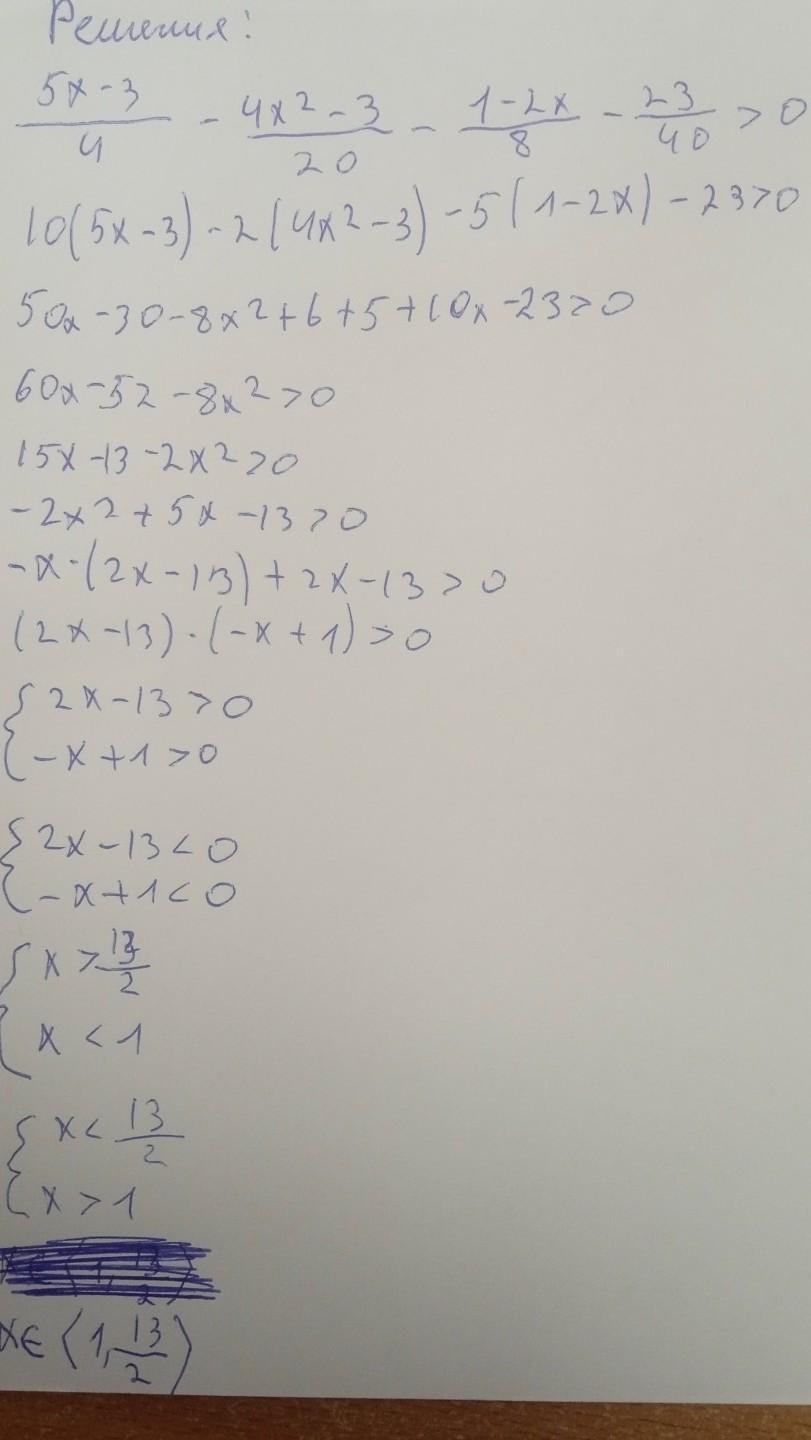 Решения:
5x-3/4 - 4x²-3/20 - 1-2x/8 - 23/40 > 0
10(5x-3) - 2(4x²-3) - 5(1-2x) - 23>0
50x -30-8x²+6+5+10x-23>0
60x-52 -8x²>0
15x -13 -2x²>0
-2x² + 5x -13>0
-x·(2x-13) + 2x-13 > 0
(2x-13)·(-x+1)>0
{ 2x-13>0
-x+1>0
{ 2x-13<0
-x+1<0
{ x > 13/2
x < 1
{ x < 13/2
x > 1
x∈ (1, 13/2)